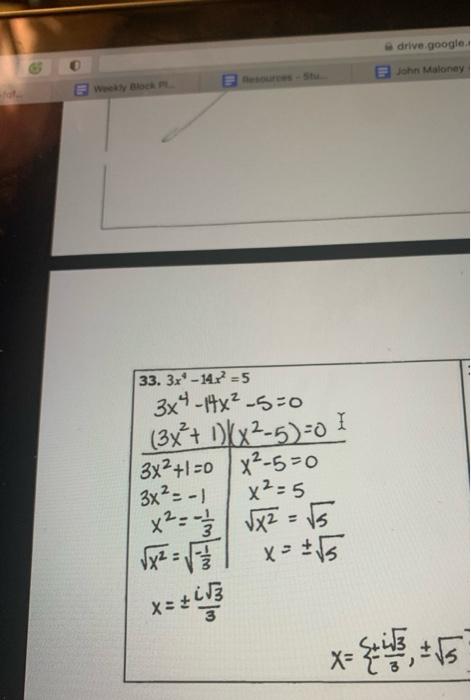 drive.google.
Weekly Block Pl...
Resources - Stu...
John Maloney
33. 3x⁴ – 14x² = 5
3x⁴ - 14x² - 5 = 0
(3x² + 1)(x² - 5) = 0
3x² + 1 = 0 x² - 5 = 0
3x² = -1 x² = 5
x² = -1/3 √x² = √5
√x² = √-1/3 x = ±√5
x = ± i√3/3
x = {± i√3/3, ±√5